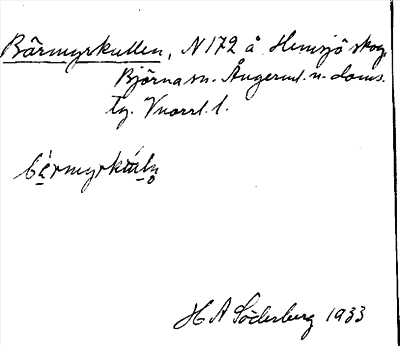 Bärmyrkullen, N172 å Hemsjö skog
Björna sn. Ångerml. n. doms.
tg. Vnorrl. l.
bérmyrkùln̥
H A Söderberg 1933